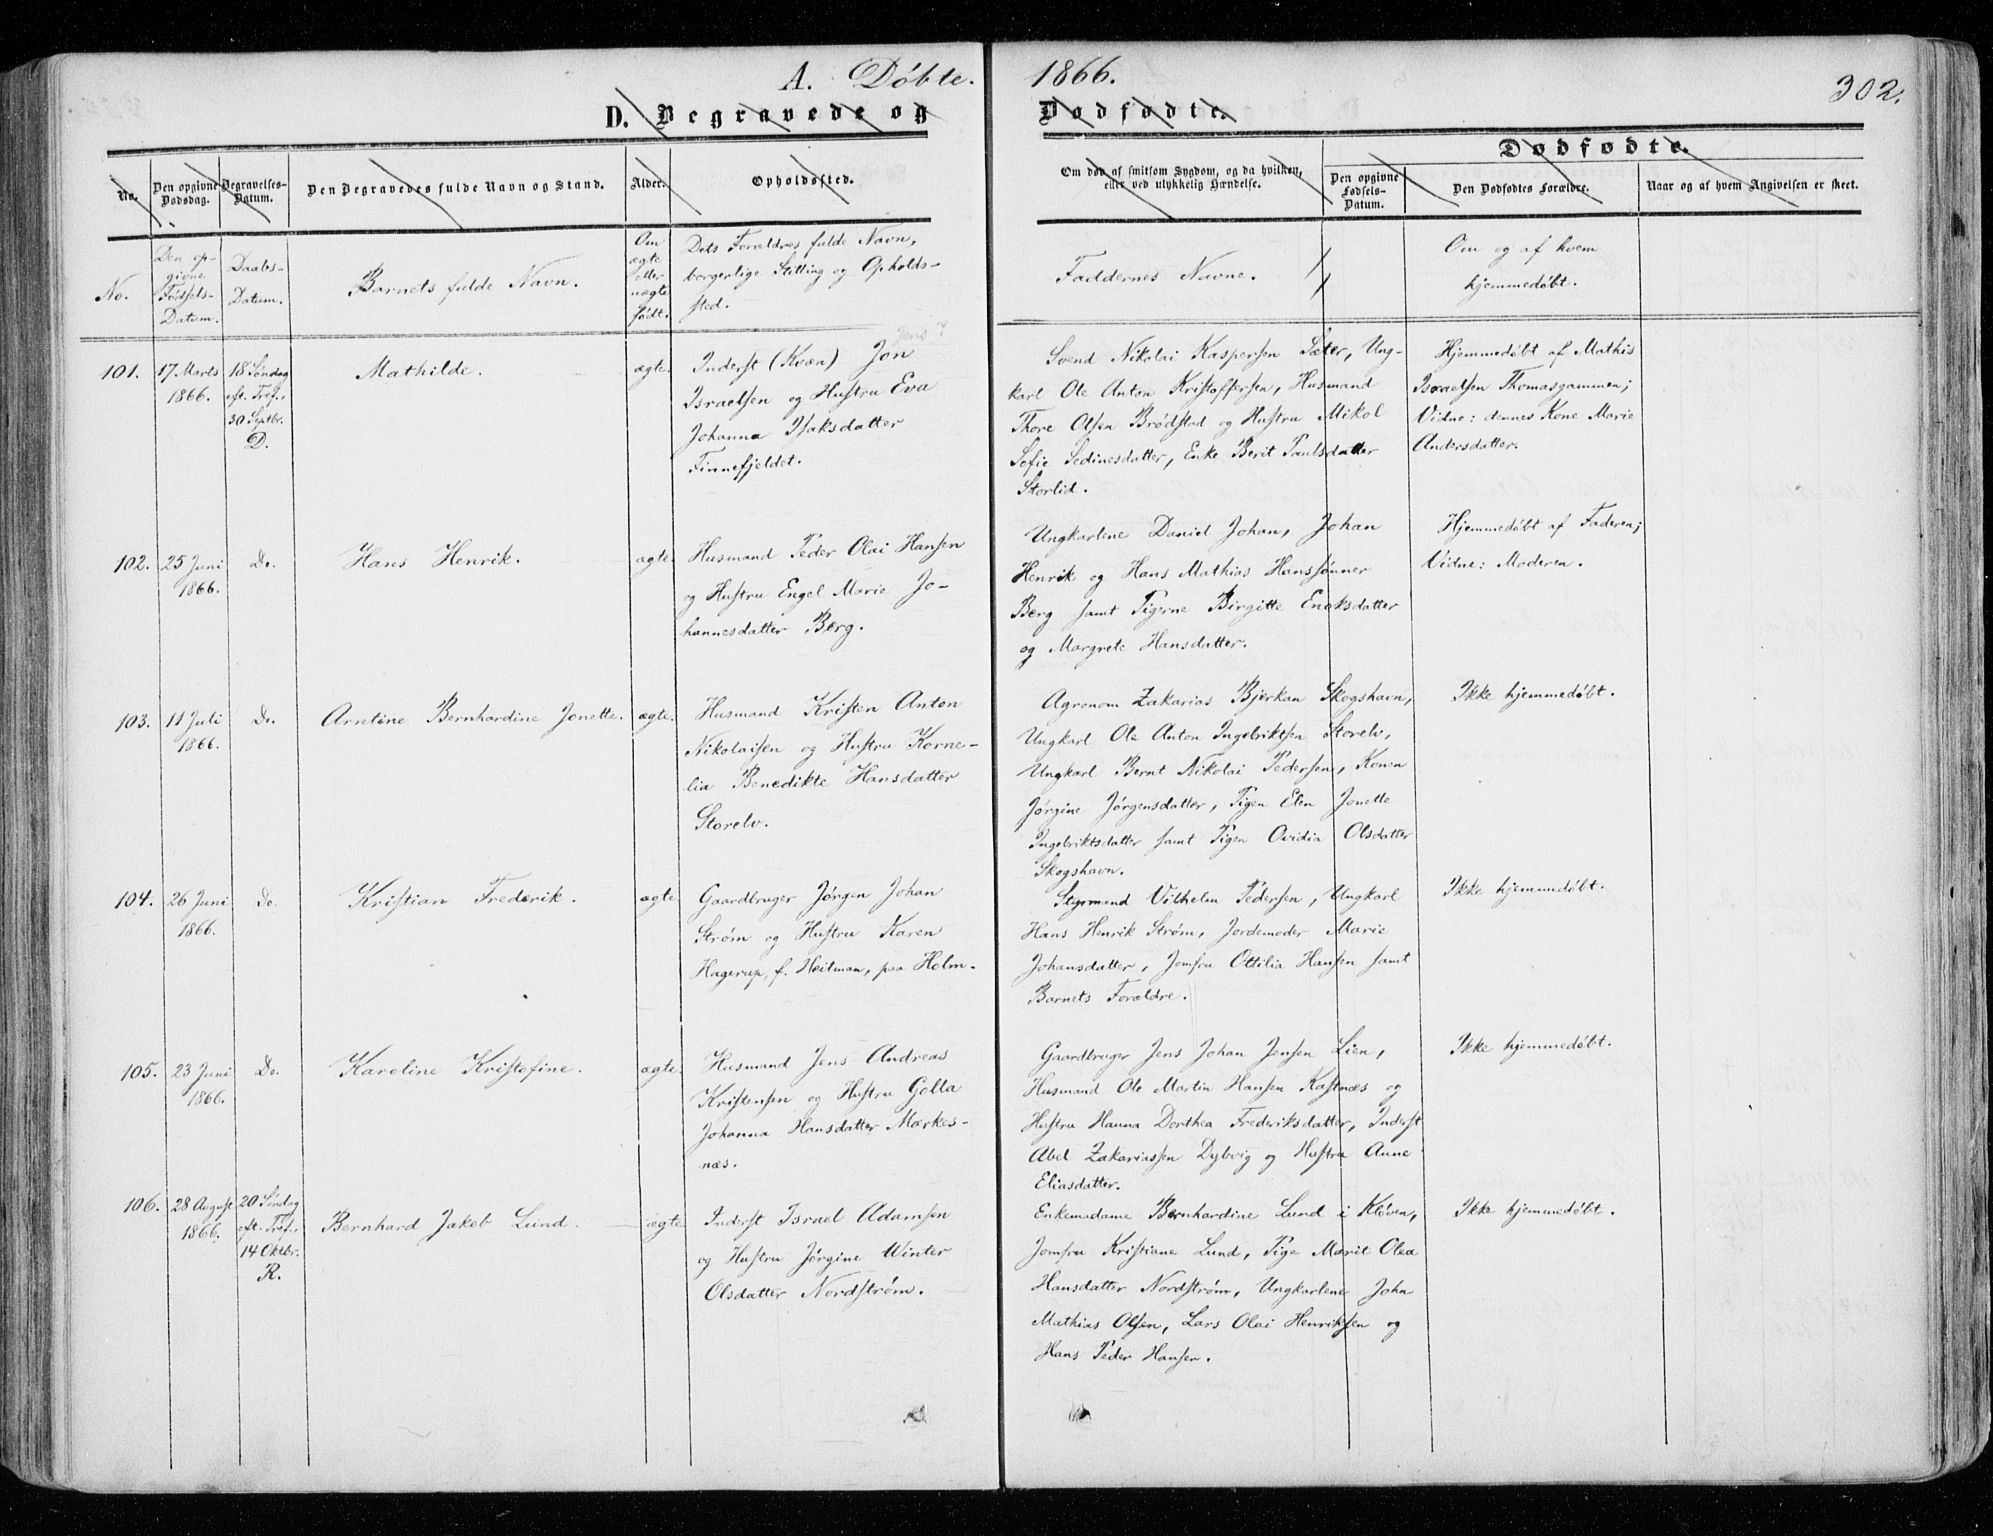 A. Døbte. 1866.
302.
D. Begravede og Dødfødte.
Dødfødte.
No.
Den opgivne Dødsdag.
Begravelses-Datum.
Den Begravedes fulde Navn og Stand.
Alder.
Opholdssted.
Om død af smitsom Sygdom, og da hvilken,
eller ved ulykkelig Hændelse.
Den opgivne Fødsels-Datum.
Den Dødfødtes Forældre.
Naar og af hvem Angivelsen er skeet.
No.
Den op-
givne
Fødsels-
Datum.
Daabs-
Datum.
Barnets fulde Navn.
Om
ægte
eller
uægte
født.
Dets Forældres fulde Navn,
borgerlige Stilling og Opholds-
sted.
Faddernes Navne.
Om og af hvem
hjemmedøbt.
101.
17 Marts
1866.
18 Søndag
eft. Tref.,
30 Septbr.
D.
Mathilde.
ægte.
Jens?
Inderst (Kvæn) Jon
Israelsen og Hustru Eva
Johanna Isaksdatter
Finnefjeldet.
Svend Nikolai Kaspersen Sæter, Ung-
karl Ole Anton Kristoffersen, Husmand
Thore Olsen Brødstad og Hustru Mikol
Sofie Sedinesdatter, Enke Berit Paulsdatter
Storlid.
Hjemmedøbt af Mathis
Israelsen Thomasgammen;
Vidne: dennes Kone Marie
Andersdatter.
102.
25 Juni
1866.
Do.
Hans Henrik.
ægte.
Husmand Peder Olai Hansen
og Hustru Engel Marie Jo-
hannesdatter Berg.
Ungkarlene Daniel Johan, Johan
Henrik og Hans Mathias Hanssønner
Berg samt Pigerne Birgitte Enoksdatter
og Margrete Hansdatter.
Hjemmedøbt af Faderen;
Vidne: Moderen.
103.
11 Juli
1866.
Do.
Arntine Bernhardine Jonette.
ægte.
Husmand Kristen Anton
Nikolaisen og Hustru Korne-
lia Benedikte Hansdatter
Storelv.
Agronom Zakarias Bjerkan Skogshavn,
Ungkarl Ole Anton Ingebriktsen Storelv,
Ungkarl Bernt Nikolai Pedersen, Konen
Jørgine Jørgensdatter, Pigen Elen Jonette
Ingebriktsdatter samt Pigen Ovidia Olsdatter
Skogshavn.
Ikke hjemmedøbt.
104.
26 Juni
1866.
Do.
Kristian Frederik.
ægte
Gaardbruger Jørgen Johan
Strøm og Hustru Karen
Hagerup, f. Heitman, paa Holm.
Styrmand Vilhelm Pedersen, Ungkarl
Hans Henrik Strøm, Jordemoder Marie
Johansdatter, Jomfru Ottilia Hansen samt
Barnets Forældre.
Ikke hjemmedøbt.
105.
23 Juni
1866.
Do.
Karoline Kristofine.
ægte.
Husmand Jens Andreas
Kristensen og Hustru Golla
Johanna Hansdatter Mærkes-
næs.
Gaardbruger Jens Johan Jensen Lien,
Husmand Ole Martin Hansen Kastnæs og
Hustru Hanna Dorthea Frederiksdatter, Inderst
Abel Zakariassen Dybvig og Hustru Anne
Eliasdatter.
Ikke hjemmedøbt.
106.
28 August
1866.
20 Søndag
eft. Tref.,
14 Oktbr.
R.
Bernhard Jakob Lund.
ægte
Inderst Israel Adamsen
og Hustru Jørgine Winter
Olsdatter Nordstrøm.
Enkemadame Bernhardine Lund i Kløven,
Jomfru Kristiane Lund, Pige Marit Olea
Hansdatter Nordstrøm, Ungkarlene John
Mathias Olsen, Lars Olai Henriksen og
Hans Peder Hansen.
Ikke hjemmedøbt.